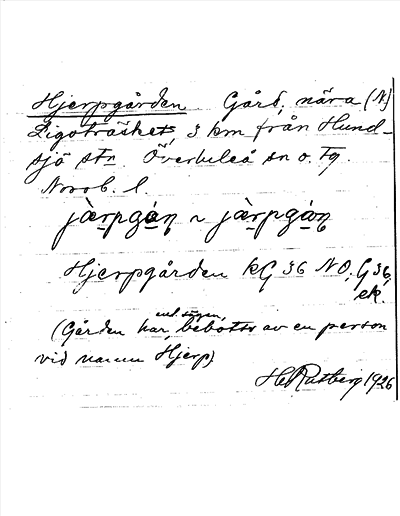 Hjerpgården Gård, nära (N)
Ligoträsket, 3 km från Hund-
sjö stn Överluleå sn o. tg.
Norrb. l.
jàrpgán ~ jàrpgán
Hjerpgården KG 36 NO, G 36,
ek.
enl. sägen,
(Gården har bebotts av en person
vid namn Hjerp)
H. Rutberg 1926